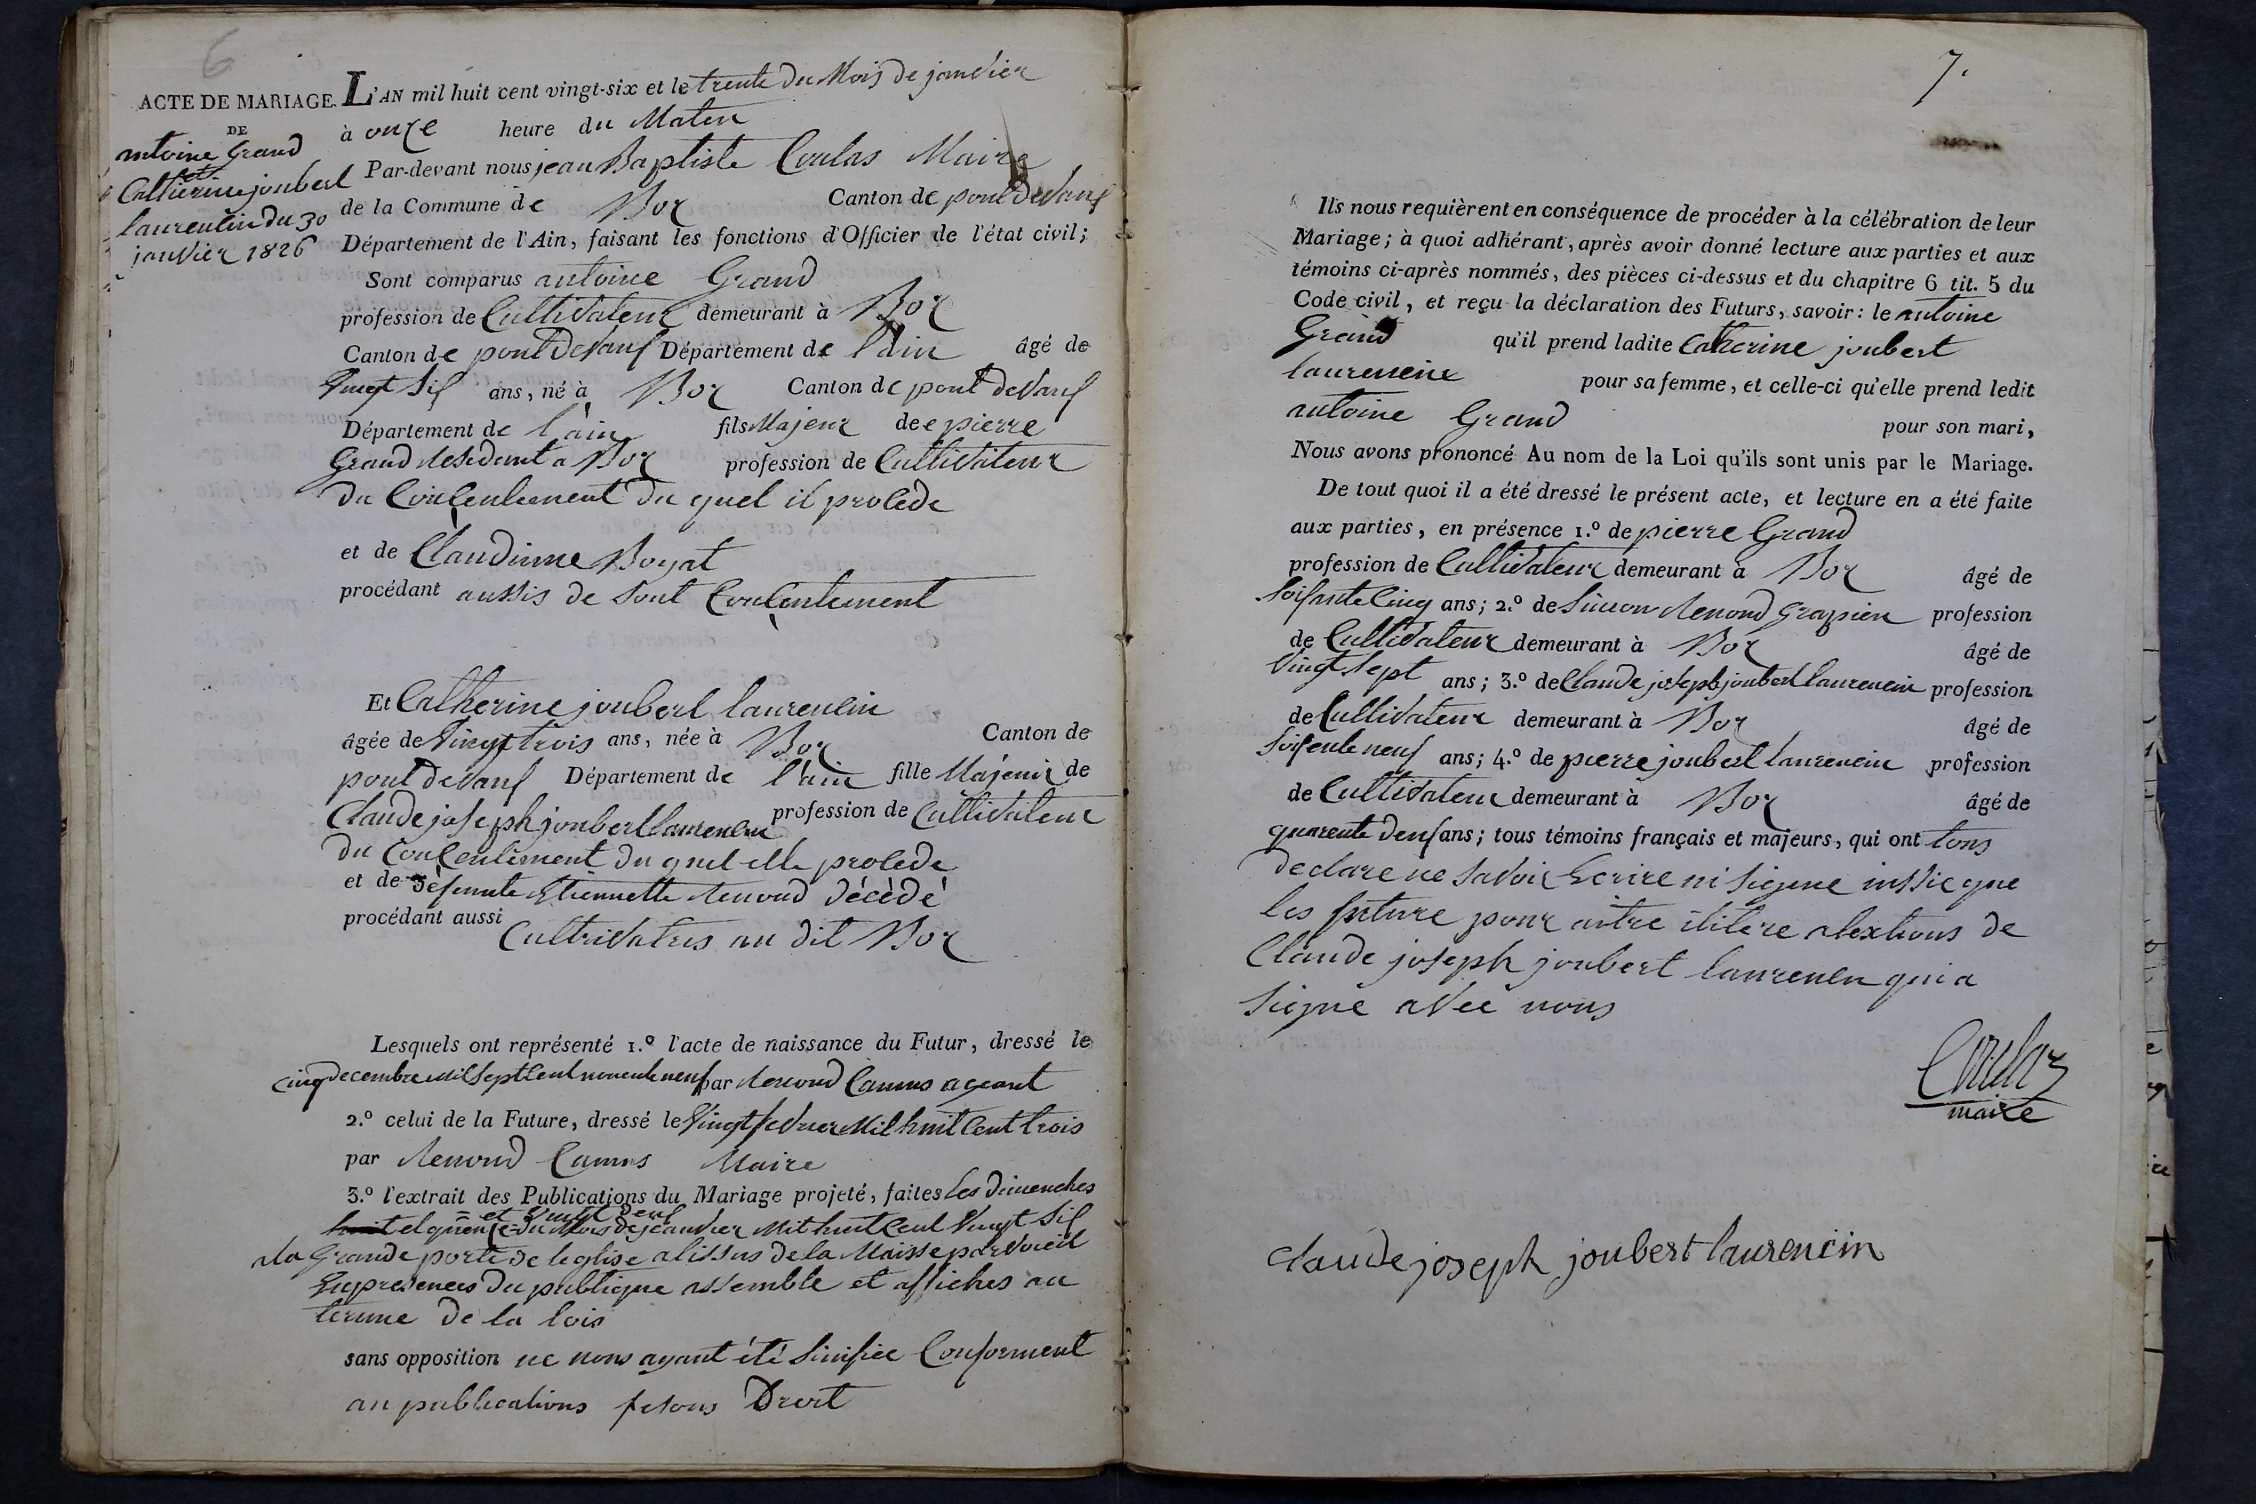 6
ACTE DE MARIAGE.
DE
antoine Grand
et
Catherine joubert
laurencin du 30
janvier 1826
L'AN mil huit cent vingt-six et le trente du Mois de janvier
à onze heure du Maten
Par-devant nous jean Baptiste Coulas Maire
de la Commune de Boz Canton de pont devaux
Département de l'Ain, faisant les fonctions d'Officier de l'état civil;
Sont comparus antoine Grand
profession de Cultivateur demeurant à Boz
Canton de pont devaux Département de l'ain âgé de
Vingt six ans, né à Boz Canton de pont devaux
Département de l'ain fils Majeur de e pierre
Grand residant a Boz profession de Cultivateur
du Conçentement du quel il procede
et de Claudinne Boyat
procédant aussis de sont Conçentement
Et Catherine joubert laurencin
âgée de Vingt trois ans, née à Boz Canton de
pont devaux Département de l'ain fille Majeur de
Claude joseph joubert laurencin profession de Cultivateur
du Conçentement du quel elle procede
et de défunte Etiennette Renoud décèdé
procédant aussi Cultrivatris au dit Boz
Lesquels ont représenté 1.º l'acte de naissance du Futur, dressé le
cinq decembre mil sept cent nonente neuf par Renoud Camus ageant
2.º celui de la Future, dressé le Vingt fevrier Mil huit Cent trois
par Renoud Camus Maire
3.º l'extrait des Publications du Mariage projeté, faites les dimenches
= et Vingt deux
huit et quienze = du Mois de jeanvier Mil huit Cent Vingt Six
a la Grande porte de leglise a lissus de la Maisse par
En presences du publique assemble et affiches au
terme de la lois
sans opposition ne nous ayant été sinifiée Conforment
au publications fesons Droit
7.
Ils nous requièrent en conséquence de procéder à la célébration de leur
Mariage; à quoi adhérant, après avoir donné lecture aux parties et aux
témoins ci-après nommés, des pièces ci-dessus et du chapitre 6 tit. 5 du
Code civil, et reçu la déclaration des Futurs, savoir: le antoine
Grand qu'il prend ladite Catherine joubert
laurencin pour sa femme, et celle-ci qu'elle prend ledit
antoine Grand pour son mari,
Nous avons prononcé Au nom de la Loi qu'ils sont unis par le Mariage.
De tout quoi il a été dressé le présent acte, et lecture en a été faite
aux parties, en présence 1.º de pierre Grand
profession de Cultivateur demeurant à Boz âgé de
soixante Cinq ans; 2.º de Simon Renoud Grapien profession
de Cultivateur demeurant à Boz âgé de
Vingt sept ans; 3.º de Claude joseph joubert laurencin profession
de Cultivateur demeurant à Boz âgé de
soixente neuf ans; 4.º de pierre joubert laurencin profession
de Cultivateur demeurant à Boz âgé de
quarente deux ans; tous témoins français et majeurs, qui ont tous
declare ne savoir Ecrire ni signe inssie que
les future pour aitre ilitere de
Claude joseph joubert laurencin qui a
signe avec nous
Coulas
maire
Claude joseph joubert laurencin